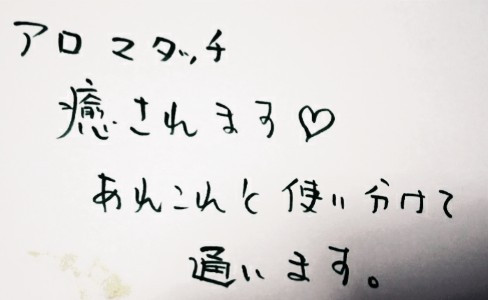 アロマタッチ
癒されます♡
あれこれと使い分けて
通います。